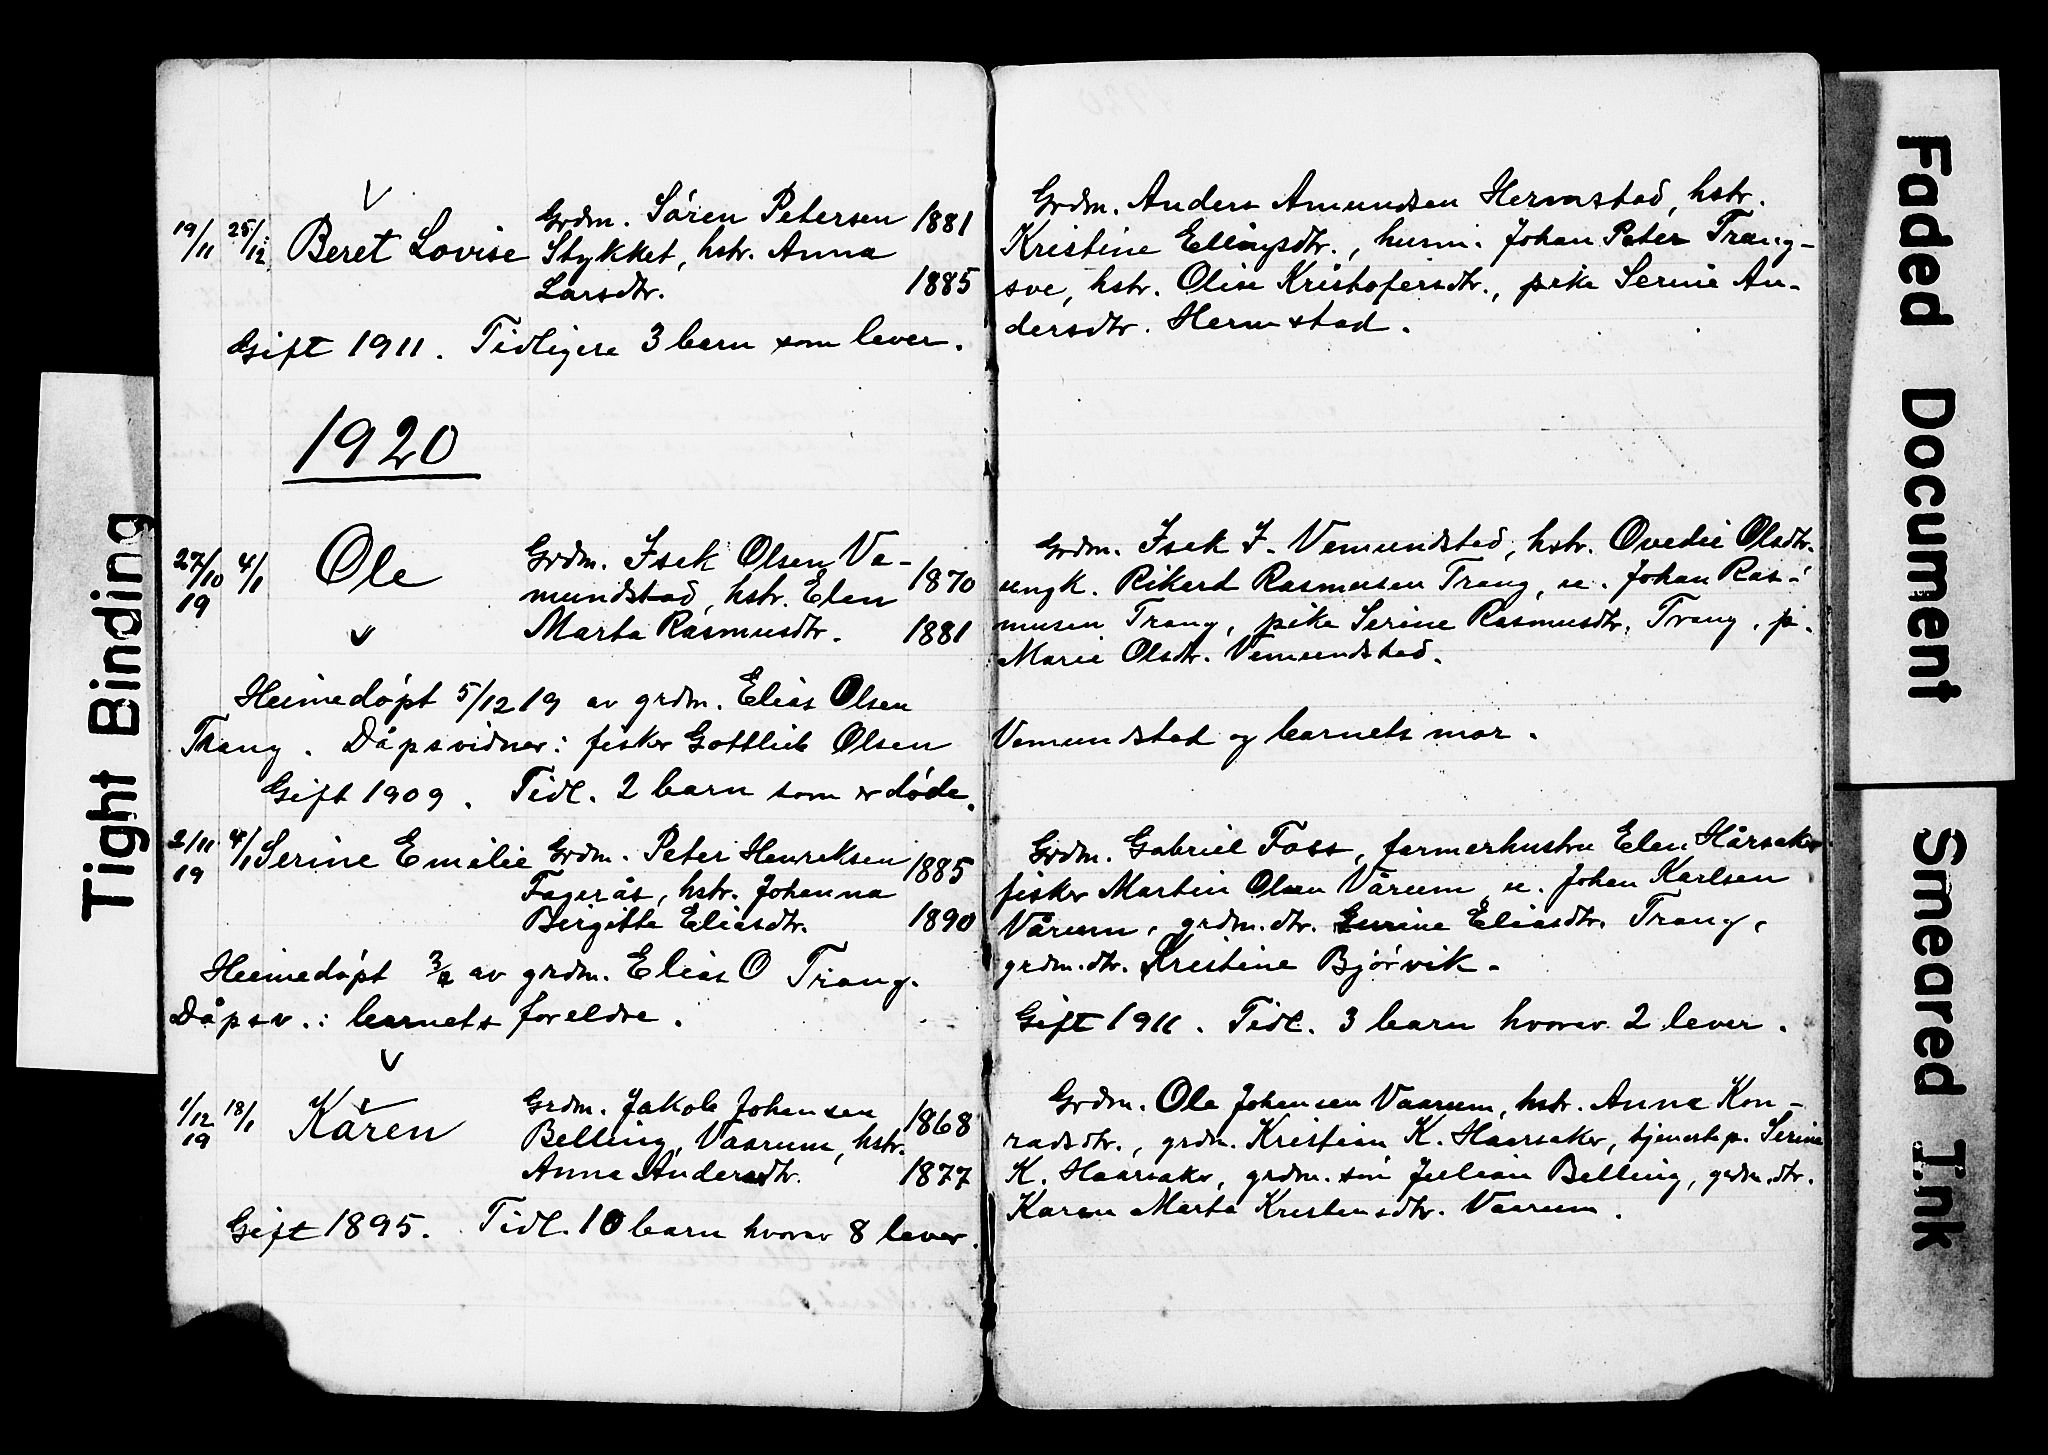 19/11 25/12 Beret Lovise Grdm. Sören Petersen 1881
Stykket, hstr. Anna
Larsdtr. 1885
Gift 1911. Tidligere 3 barn som lever.
Grdm. Anders Amundsen Hermstad, hstr.
Kristine Ellingsdtr., husm. Johan Peter Trang-
sve, hstr. Olise Kristofersdtr., pike Serine An-
dersdtr. Hermstad.
1920
27/10 19 4/1 Ole Grdm. Isek Olsen Ve-
mundstad, hstr. Elen 1870
Marta Rasmusdtr. 1881
Heimedøpt 5/12 19 av grdm. Elias Olsen
Trang. Dåpsvidner: fisker Gottlieb Olsen
Gift 1909. Tidl. 2 barn som er døde.
Grdm. Isek I. Vemundstad, hstr. Ovedie Olsdtr.
ungk. Rikard Rasmusen Trang, u. Johan Ras-
musen Trang, pike Serine Rasmusdtr. Trang, p.
Marie Olsdtr. Vemundstad.
Vemundstad og barnets mor.
2/11 19 4/1 Serine Emelie Grdm. Peter Henriksen 1885
Fagerås, hstr. Johanna
Bergitte Eliasdtr. 1890
Heimedøpt av grdm. Elias O Trang.
Dåpsv.: barnets foreldre.
Grdm. Gabriel Foss, farmerhustru Elen Hårsaker
fisker Martin Olsen Vårum, u. Johan Karlsen
Vårum, grdm.dtr. Eliasdtr. Trang,
grdm.dtr. Kristine Bjørvik.
Gift 1911. Tidl. 3 barn hvorav 2 lever.
1/12 19 18/1 Karen Grdm. Jakob Johansen 1868
Belling, Vaarum, hstr.
Anna Andersdtr. 1877
Gift 1895. Tidl. 10 barn hvorav 8 lever.
Grdm. Ole Johansen Vaarum, hstr. Anna Kon-
radsdtr., grdm. Kristian K. Haarsaker, tjenestep. Serine
K. Haarsaker, grdm. søn Julian Belling, grdm.dtr.
Karen Marta Kristensdtr. Vaarum.
Tight Binding
Faded Document
Smeared Ink